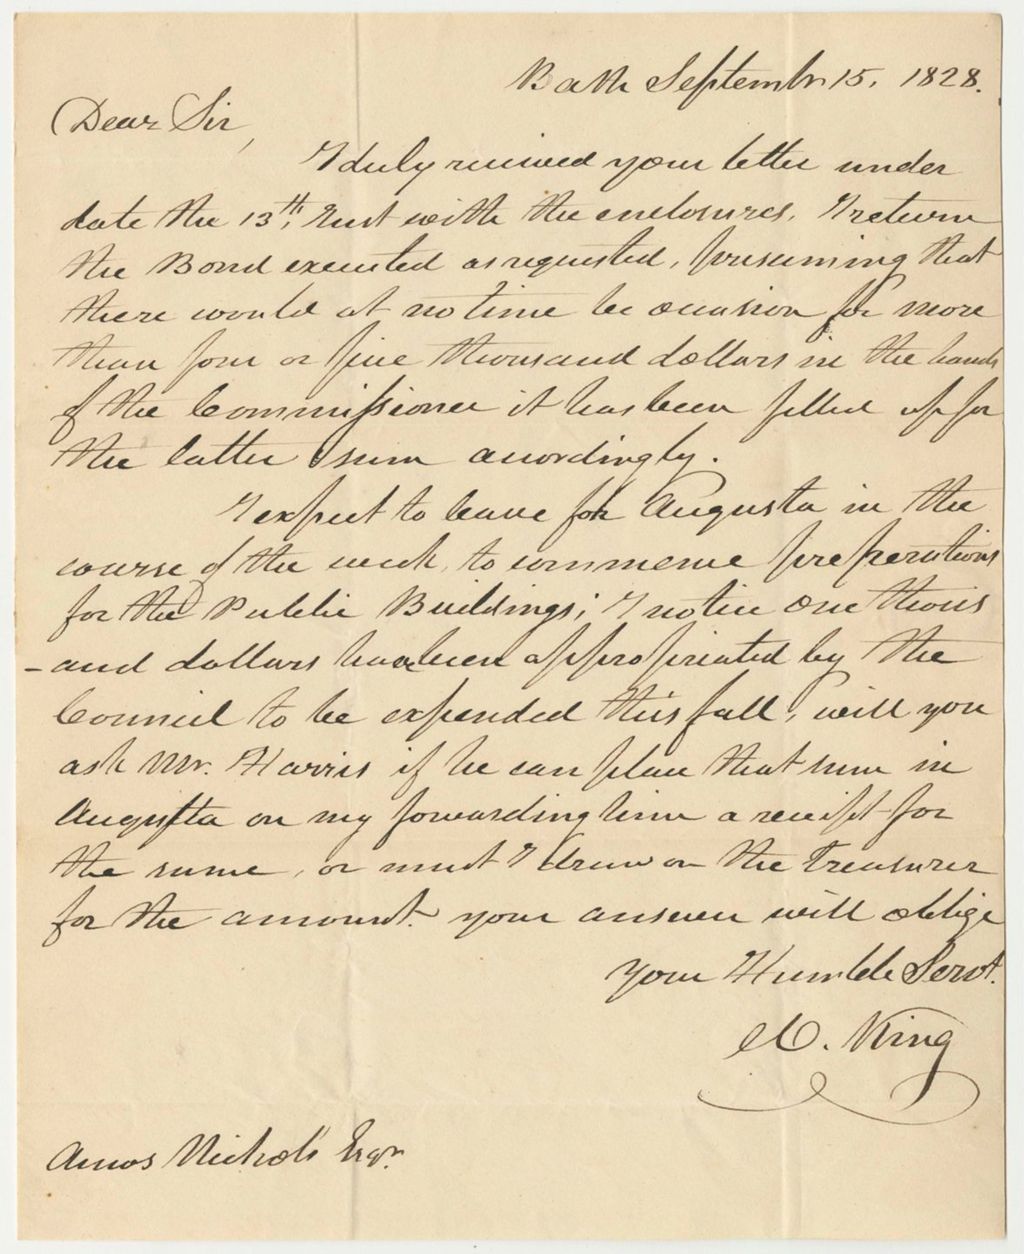 Bath Septembr 15. 1828.
Dear Sir,
I duly received your letter under
date the 13th. Inst with the enclosures. I return
the Bond executed as requested, presuming that
there would at no time be occasion for more
than four or five thousand dollars in the hands
of the Commissioner it has been filled up for
the latter sum accordingly.
I expect to leave for Augusta in the
course of the week, to commence preperations
for the Public Buildings; I notice One thous
-and dollars have been appropriated by the
Council to be expended this fall, will you
ask Mr. Harris if he can place that sum in
Augusta on my forwarding him a receipt for
the same, or must I draw on the Treasurer
for the amount. your answer will oblige
your Humble Servt.
King
Amos Nichols Esqr.